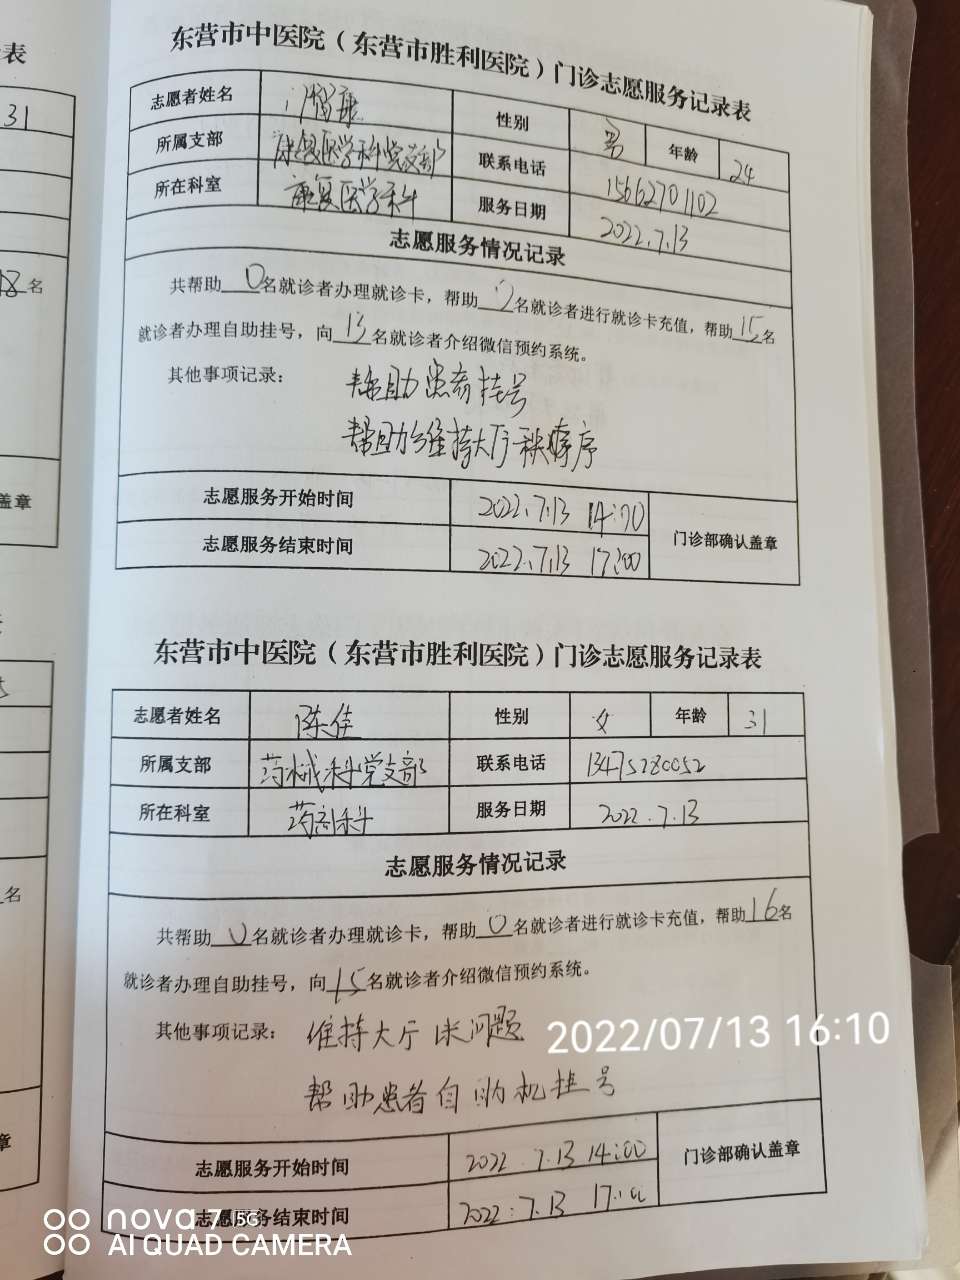 表
31
18名
盖章
名
章
东营市中医院（东营市胜利医院）门诊志愿服务记录表
志愿者姓名 康 性别 男 年龄 24
所属支部 康复医学科党支部 联系电话 15662701102
所在科室 康复医学科 服务日期 2022.7.13
志愿服务情况记录
共帮助0名就诊者办理就诊卡，帮助0名就诊者进行就诊卡充值，帮助15名
就诊者办理自助挂号，向13名就诊者介绍微信预约系统。
其他事项记录： 帮助患者挂号
帮助维持大厅秩序
志愿服务开始时间 2022.7.13 14:00
门诊部确认盖章
志愿服务结束时间 2022.7.13 17:00
东营市中医院（东营市胜利医院）门诊志愿服务记录表
志愿者姓名 陈佳 性别 女 年龄 31
所属支部 药械科党支部 联系电话 13475280052
所在科室 药剂科 服务日期 2022.7.13
志愿服务情况记录
共帮助0名就诊者办理就诊卡，帮助0名就诊者进行就诊卡充值，帮助16名
就诊者办理自助挂号，向15名就诊者介绍微信预约系统。
其他事项记录： 维持大厅 问题
2022/07/13 16:10
帮助患者自助机挂号
志愿服务开始时间 2022.7.13 14:00
门诊部确认盖章
志愿服务结束时间 2022.7.13 17:00
nova 7 5G
AI QUAD CAMERA